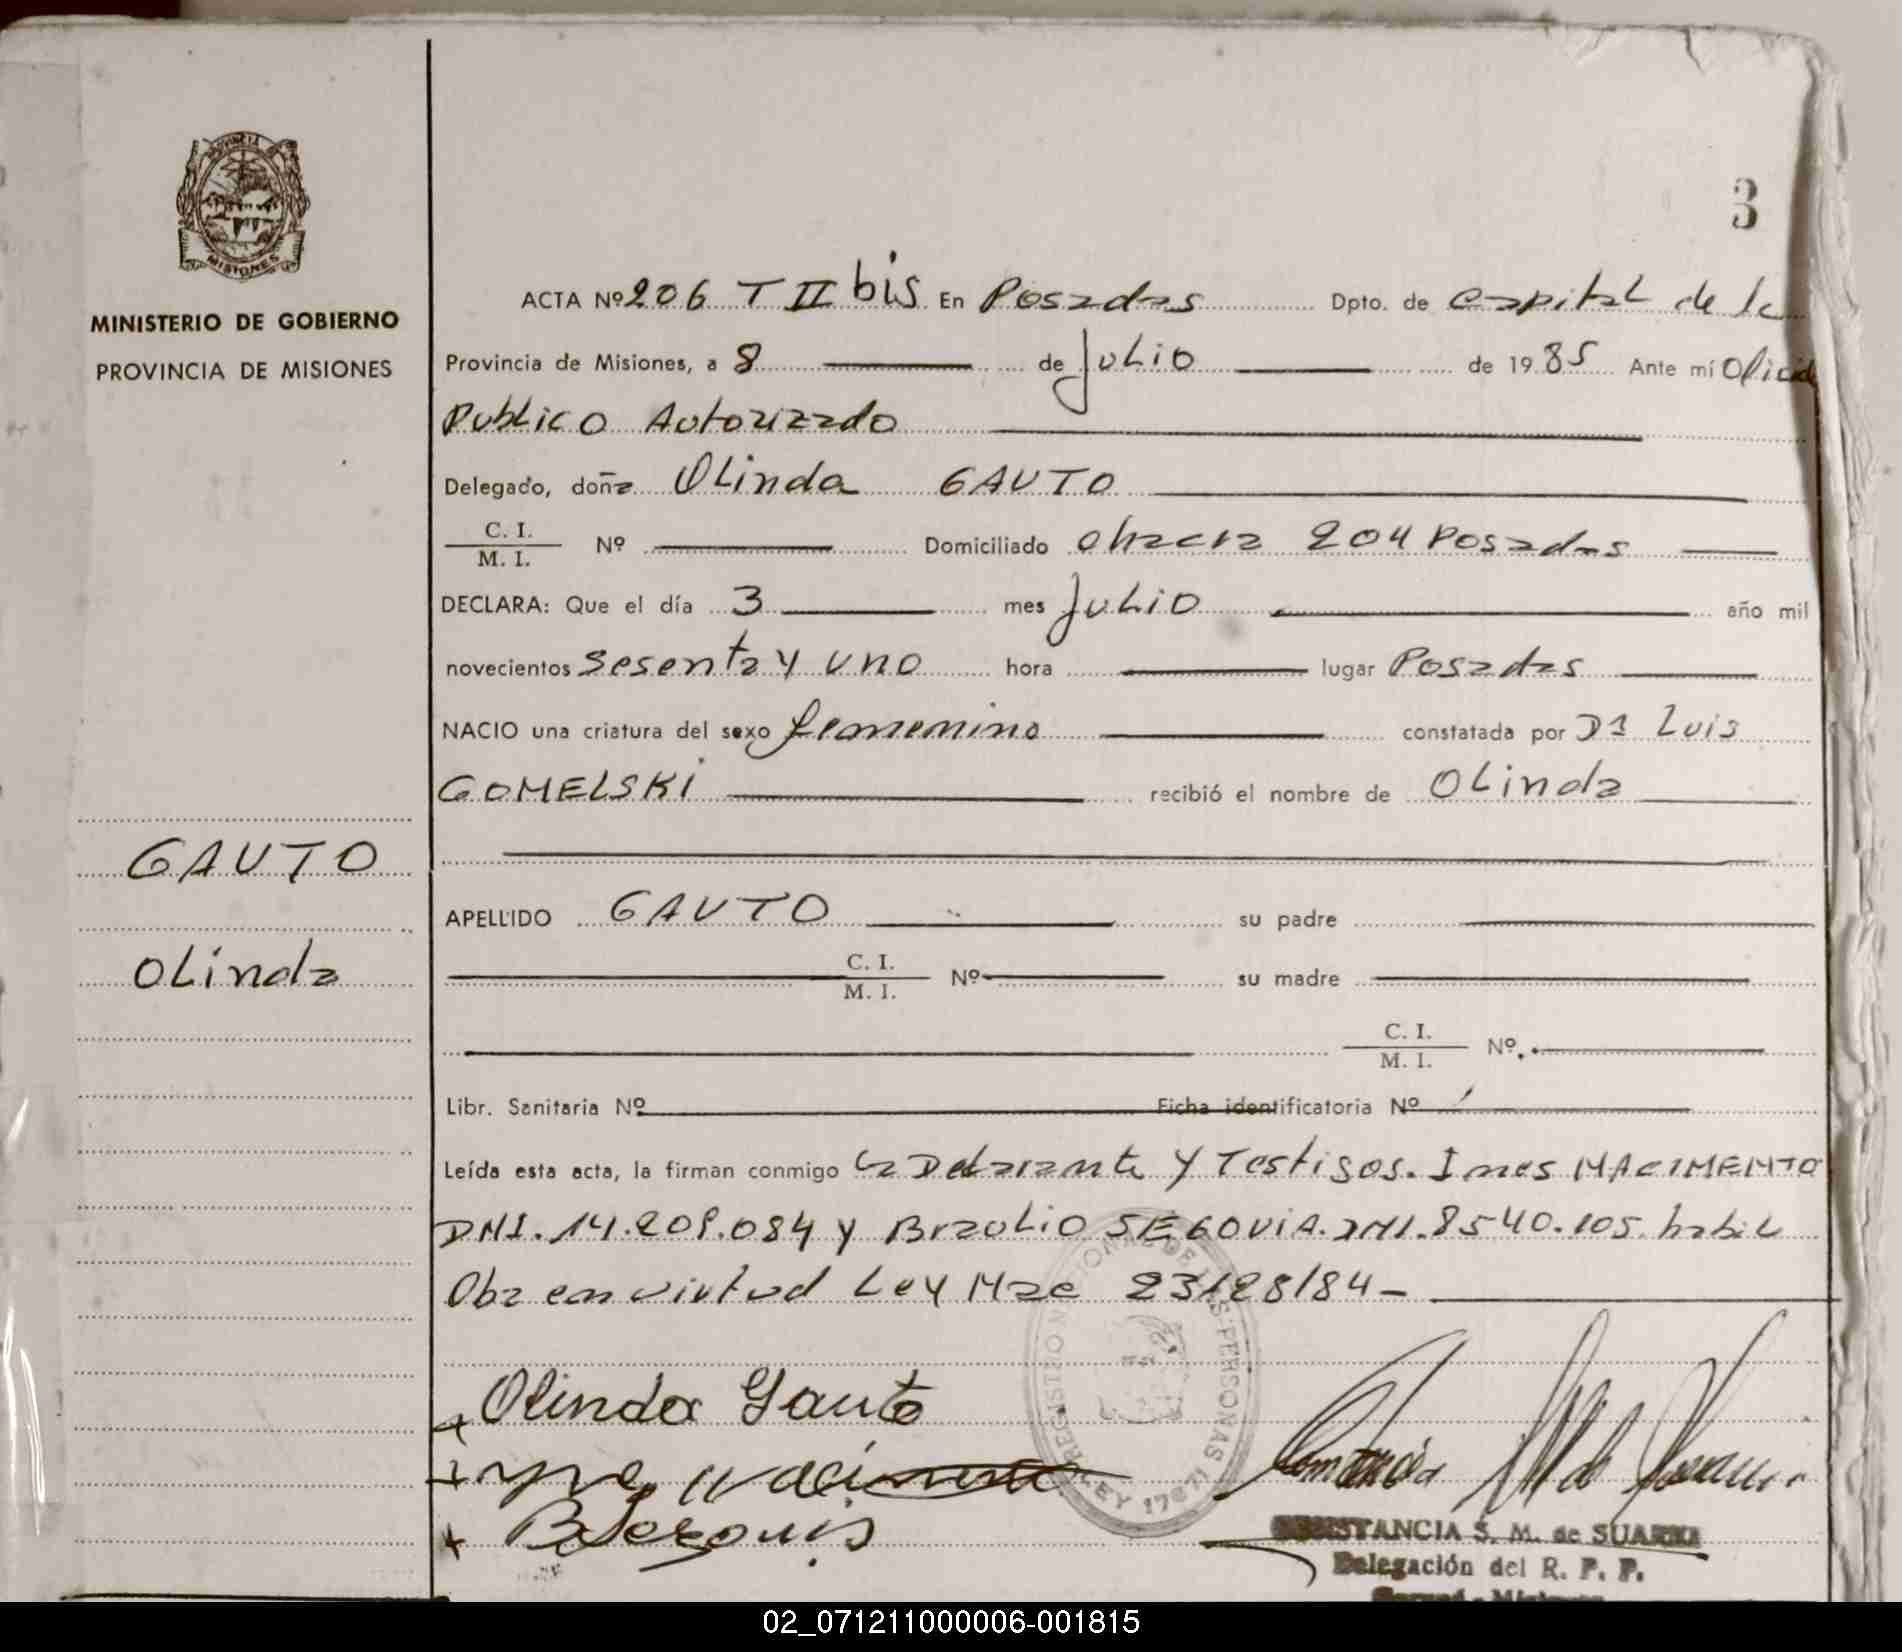 3
PROVINCIA DE
MISIONES
MINISTERIO DE GOBIERNO
PROVINCIA DE MISIONES
GAUTO
OLinda
ACTA Nº 206 T II bis En Posadas Dpto. de Capital de la
Provincia de Misiones, a 8 de Julio de 1985 Ante mí Oficial
Publico Autorizado
Delegado, doña Olinda GAUTO
C. I.
M. I. Nº Domiciliado chacra 204 Posadas
DECLARA: Que el día 3 mes Julio año mil
novecientos sesenta y uno hora lugar Posadas
NACIO una criatura del sexo femenino constatada por Dr Luis
GOMELSKI recibió el nombre de OLinda
APELLIDO GAUTO su padre
C. I.
M. I. Nº su madre
C. I.
M. I. Nº.
Libr. Sanitaria Nº Ficha identificatoria Nº
Leída esta acta, la firman conmigo La Declarante y Testigos. Ines NACIMENTO
DNI. 14.209.084 y Braulio SEGOVIA. DNI. 8540.105. habil
Obra en virtud Ley Nac 23128/84-
Olinda Gauto
B Segovia
REGISTRO NACIONAL DE LAS PERSONAS
LEY 17671
CONSTANCIA S. M. de SUAREZ
Delegación del R. P. P.
02_071211000006-001815